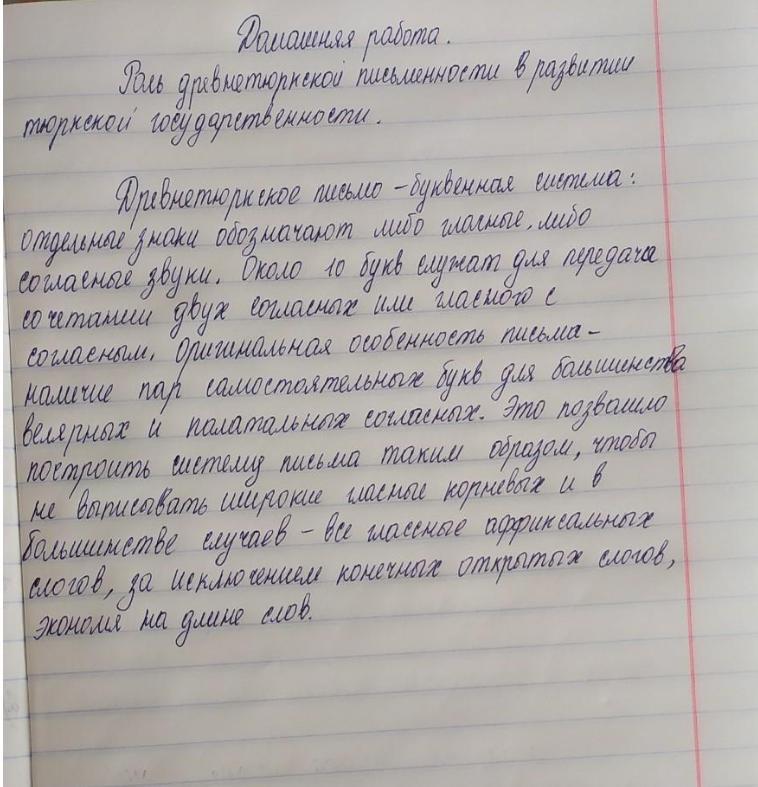 Домашняя работа.
Роль древнетюркской письменности в развитии
тюркской государственности.
Древнетюркское письмо – буквенная система:
отдельные знаки обозначают либо гласные, либо
согласные звуки. Около 10 букв служат для передача
сочетании двух согласных или гласного с
согласным. Оригинальная особенность письма –
наличие пар самостоятельных букв для большинства
велярных и палатальных согласных. Это позвашло
построить систему письма таким образом, чтобы
не выписывать широкие гласные корневых и в
большинстве случаев – все глассные аффиксальных
слогов, за исключением конечных открытых слогов,
экономя на длине слов.